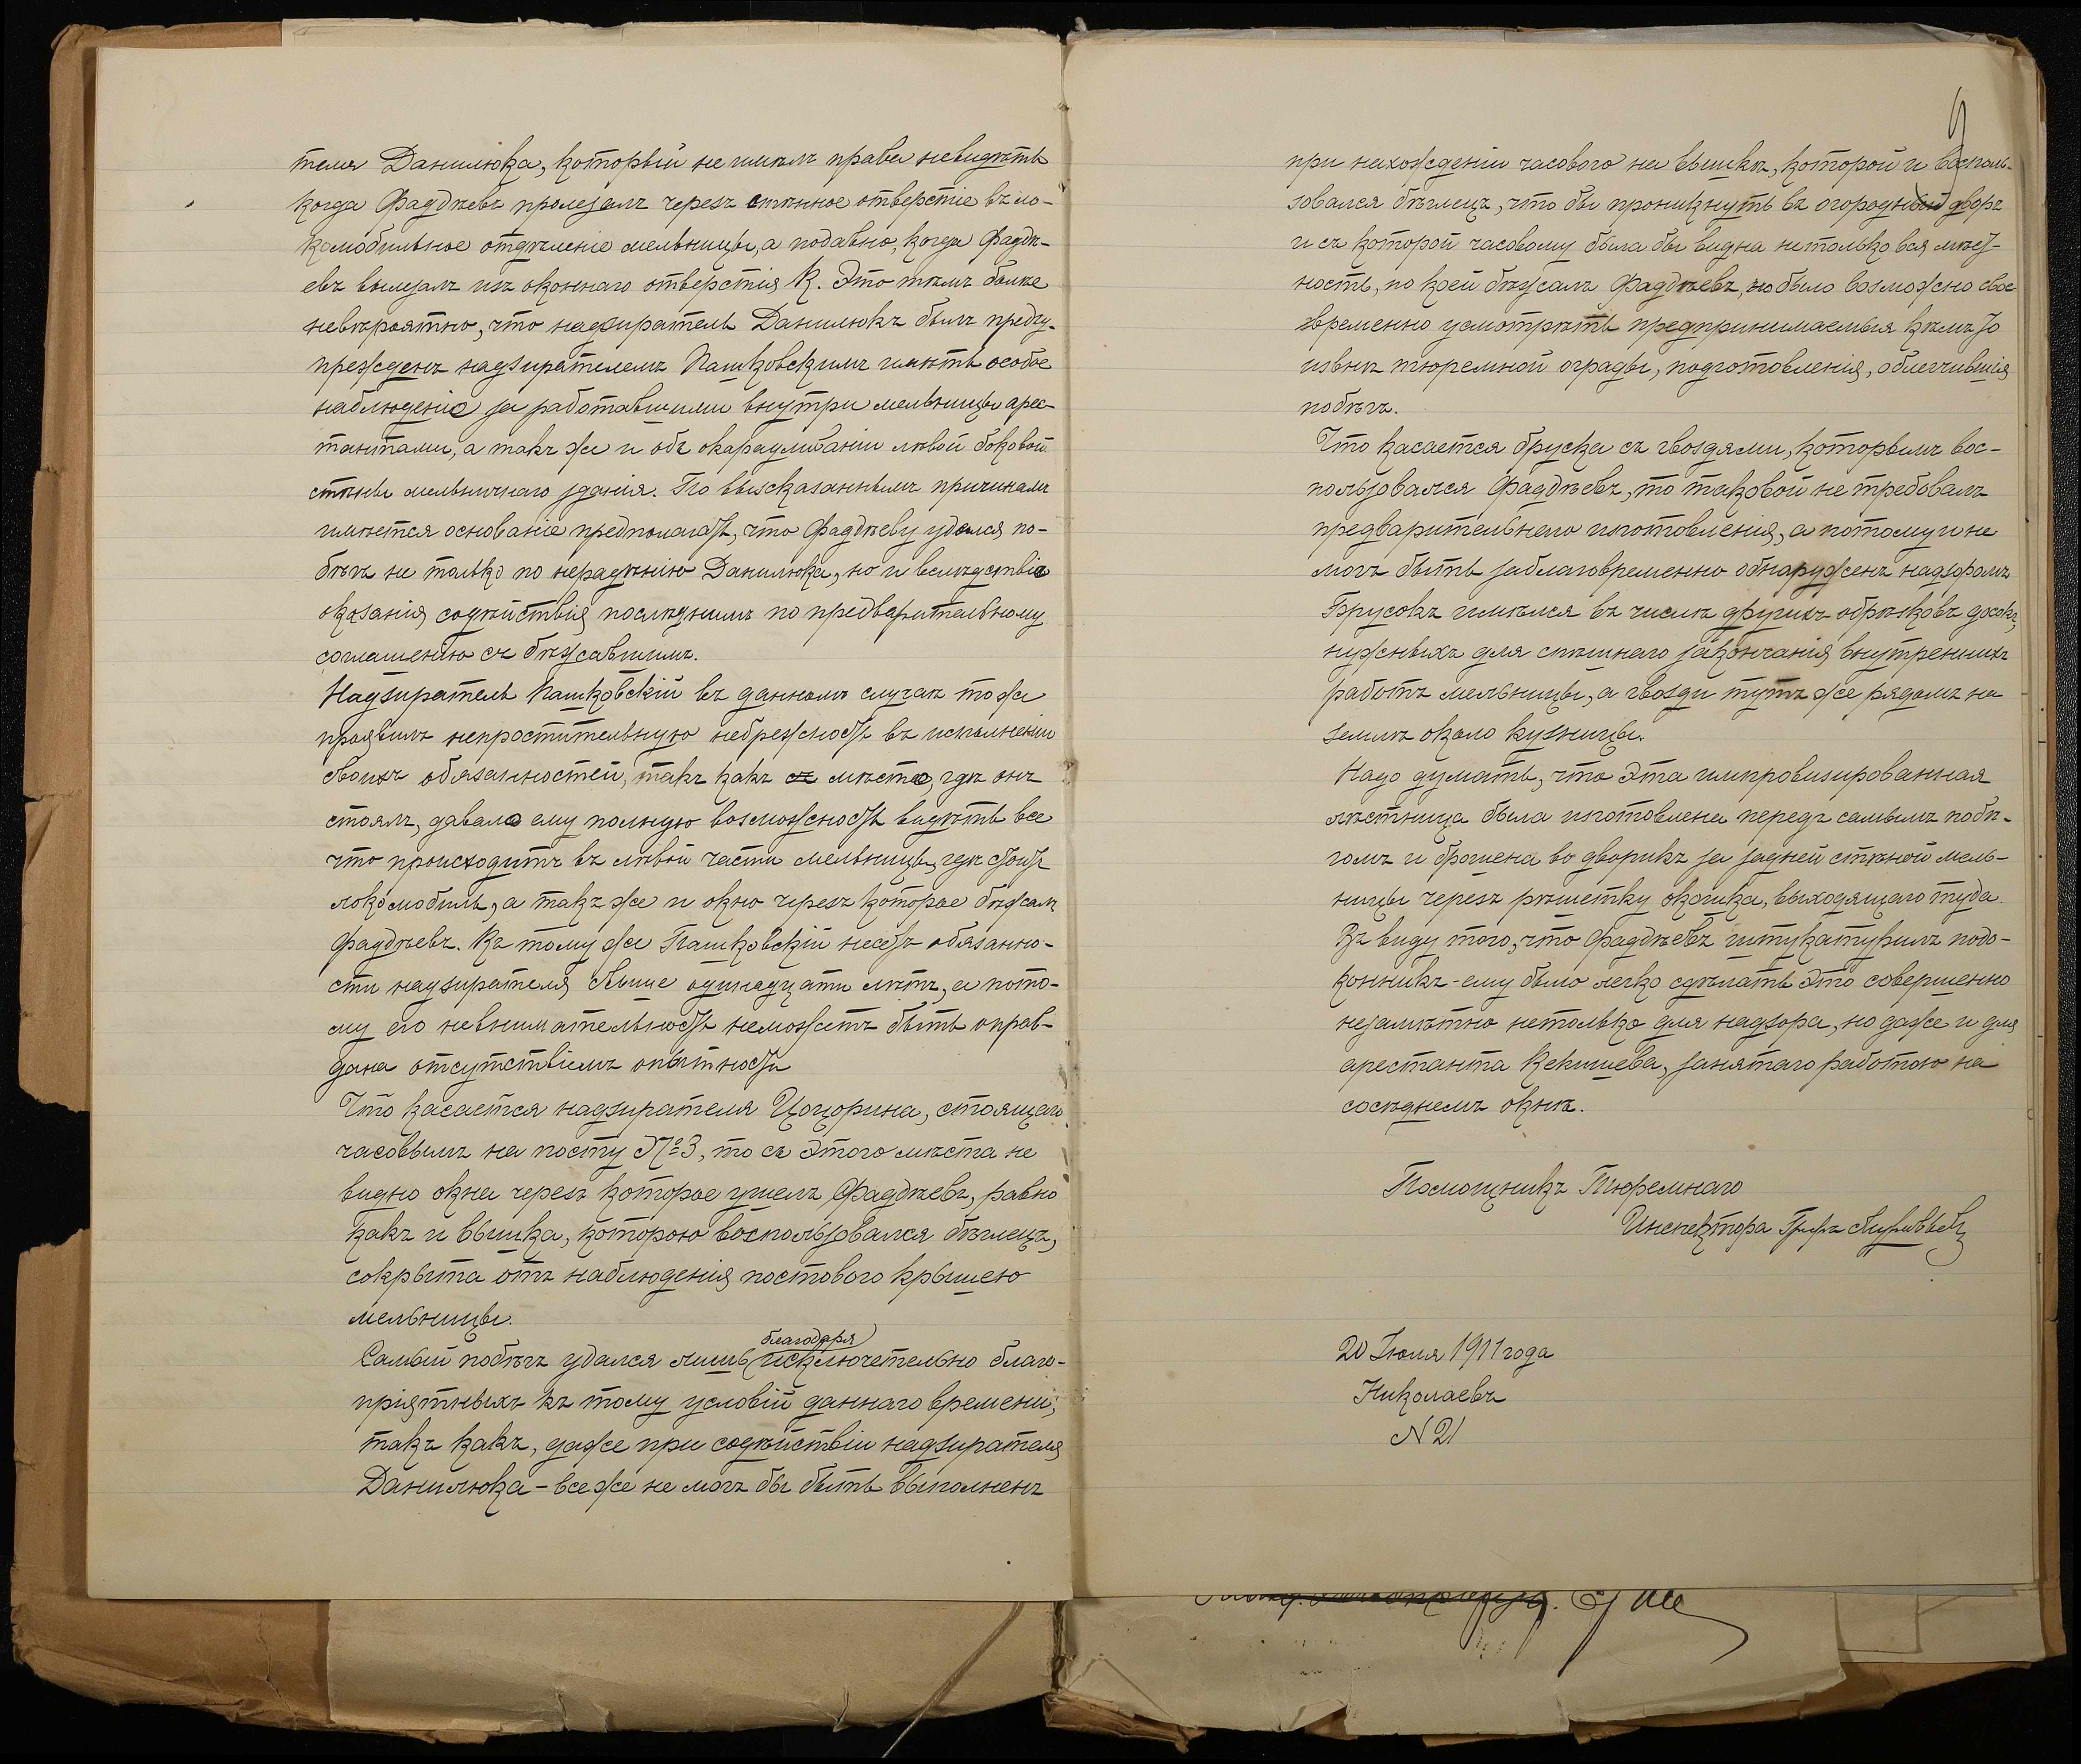 теля Данилюка, который не имелъ права невидѣть
когда Фаддѣевъ пролезалъ черезъ стѣнное отверстіе въ ло-
комобильное отдѣленіе мельницы, а подавно, когда Фаддѣ-
евъ вылезалъ изъ оконнаго отверстія К. Это тѣмъ болѣе
невѣроятно, что надзиратель Данилюкъ былъ преду-
прежденъ надзирателемъ Пашковскимъ имѣть особое
наблюденіе за работавшими внутри мельницы арес-
тантами, а такъ же и объ окарауливаніи лѣвой боковой
стѣны мельничнаго зданія. По высказаннымъ причинамъ
имѣется основаніе предполагать, что Фаддѣеву удался по-
бѣгъ не только по нерадѣнію Данилюка, но и вслѣдствіе
оказанія содѣйствія послѣднимъ по предварительному
соглашенію съ бѣжавшимъ.
Надзиратель Пашковскій въ данномъ случаѣ тоже
проявилъ непростительную небрежность въ исполненіи
своихъ обязанностей, такъ какъ мѣсто, гдѣ онъ
стоялъ, давало ему полную возможность видѣть все
что происходитъ въ лѣвой части мельницы, гдѣ стоитъ
локомобиль, а такъ же и окно черезъ которое бѣжалъ
Фаддѣевъ. Къ тому же Пашковскій несетъ обязанно-
сти надзирателя свыше одинадцати лѣтъ, а пото-
му его невнимательность неможетъ быть оправ-
дана отсутствіемъ опытности
Что касается надзирателя Цоцорина, стоящаго
часовымъ на посту №3, то съ этого мѣста не
видно окна черезъ которое ушелъ Фаддѣевъ, равно
какъ и вышка, которою воспользовался бѣглецъ,
сокрыта отъ наблюденія постового крышею
мельницы.
благодаря
Самый побѣгъ удался лишь исключетельно благо-
пріятныхъ къ тому условій даннаго времени,
такъ какъ, даже при содѣйствіи надзирателя
Данилюка – все же не могъ бы быть выполненъ
9
при нахожденіи часового на вышкѣ, которой и восполь-
зовался бѣглецъ, что бы проникнуть въ огородный дворъ
и съ которой часовому была бы видна нетолько вся мѣст-
ность, по коей бѣжалъ Фаддѣевъ, но было возможно свое
временно усмотрѣть предпринимаемыя кѣмъ то
извнѣ тюремной ограды, подготовленія, облегчившія
побѣгъ.
Что касается бруска съ гвоздями, которымъ вос-
пользовался Фаддѣевъ, то таковой не требовалъ
предварительнаго изготовленія, а потому и не
могъ быть заблаговременно обнаруженъ надзоромъ
Брусокъ имѣлся въ числѣ другихъ обрѣзковъ досокъ,
нужныхъ для спѣшнаго законченія внутреннихъ
работъ мельницы, а гвозди тутъ же рядомъ на
землѣ около кузницы.
Надо думать, что эта импровизированная
лѣстница была изготовлена передъ самымъ побѣ-
гомъ и брошена во дворикъ за задней стѣной мель-
ницы черезъ рѣшетку окошка, выходящаго туда.
Въ виду того, что Фаддѣевъ штукатурилъ подо-
конникъ - ему было легко сдѣлать это совершенно
незамѣтно нетолько для надзора, но даже и для
арестанта Кекишева, занятаго работою на
сосѣднемъ окнѣ.
Помощникъ Тюремнаго
Инспектора
20 Іюля 1911 года
Николаевъ
N 21